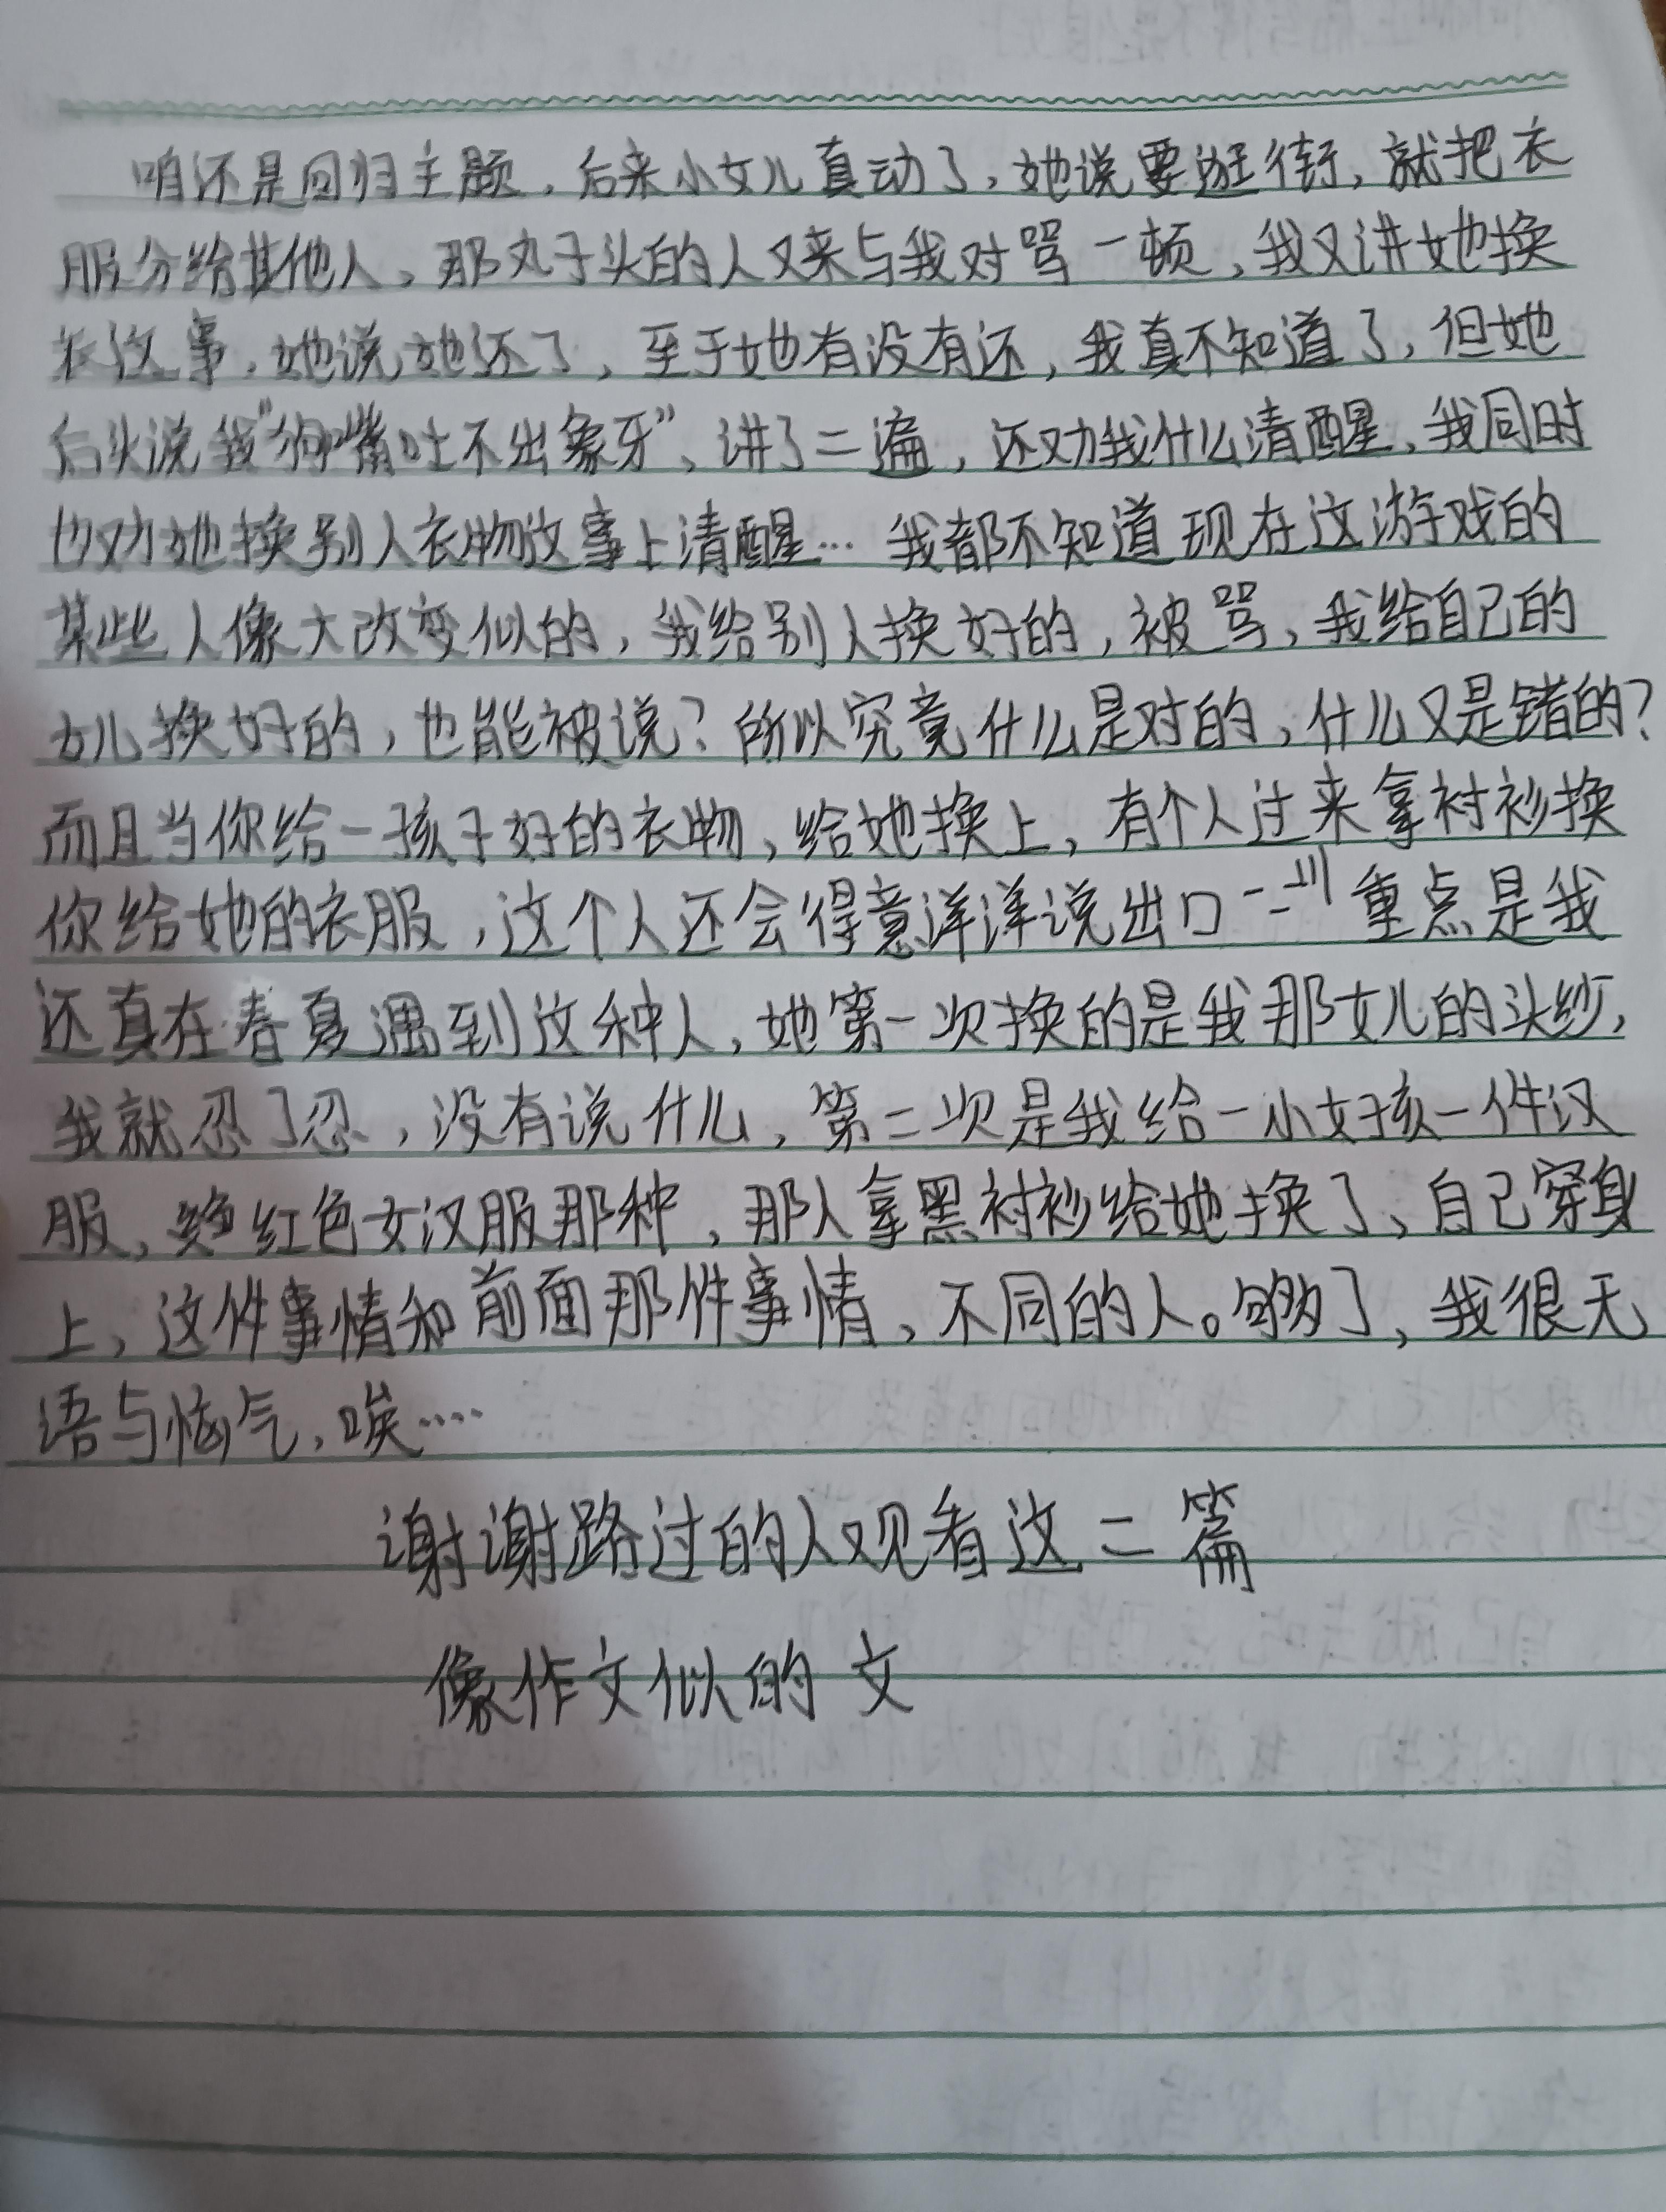 咱还是回归主题，后来小女儿真动了，她说要逛街，就把衣
服分给其他人，那丸子头的人又来与我对骂一顿，我又讲她换
衣这事，她说她还了，至于她有没有还，我真不知道了，但她
后头说我"狗嘴吐不出象牙"，讲了二遍，还劝我什么清醒，我同时
也劝她换别人衣物这事上清醒… 我都不知道现在这游戏的
某些人像大改变似的，我给别人换好的，被骂，我给自己的
女儿换好的，也能被说？所以究竟什么是对的，什么又是错的？
而且当你给一孩子好的衣物，给她换上，有个人过来拿衬衫换
你给她的衣服，这个人还会得意洋洋说出口 重点是我
还真在春夏遇到这种人，她第一次换的是我那女儿的头纱，
我就忍了忍，没有说什么，第二次是我给一小女孩一件汉
服，红色女汉服那种，那人拿黑衬衫给她换了，自己穿身
上，这件事情和前面那件事情，不同的人。够了，我很无
语与恼气，唉····
谢谢路过的人观看这二篇
像作文似的文